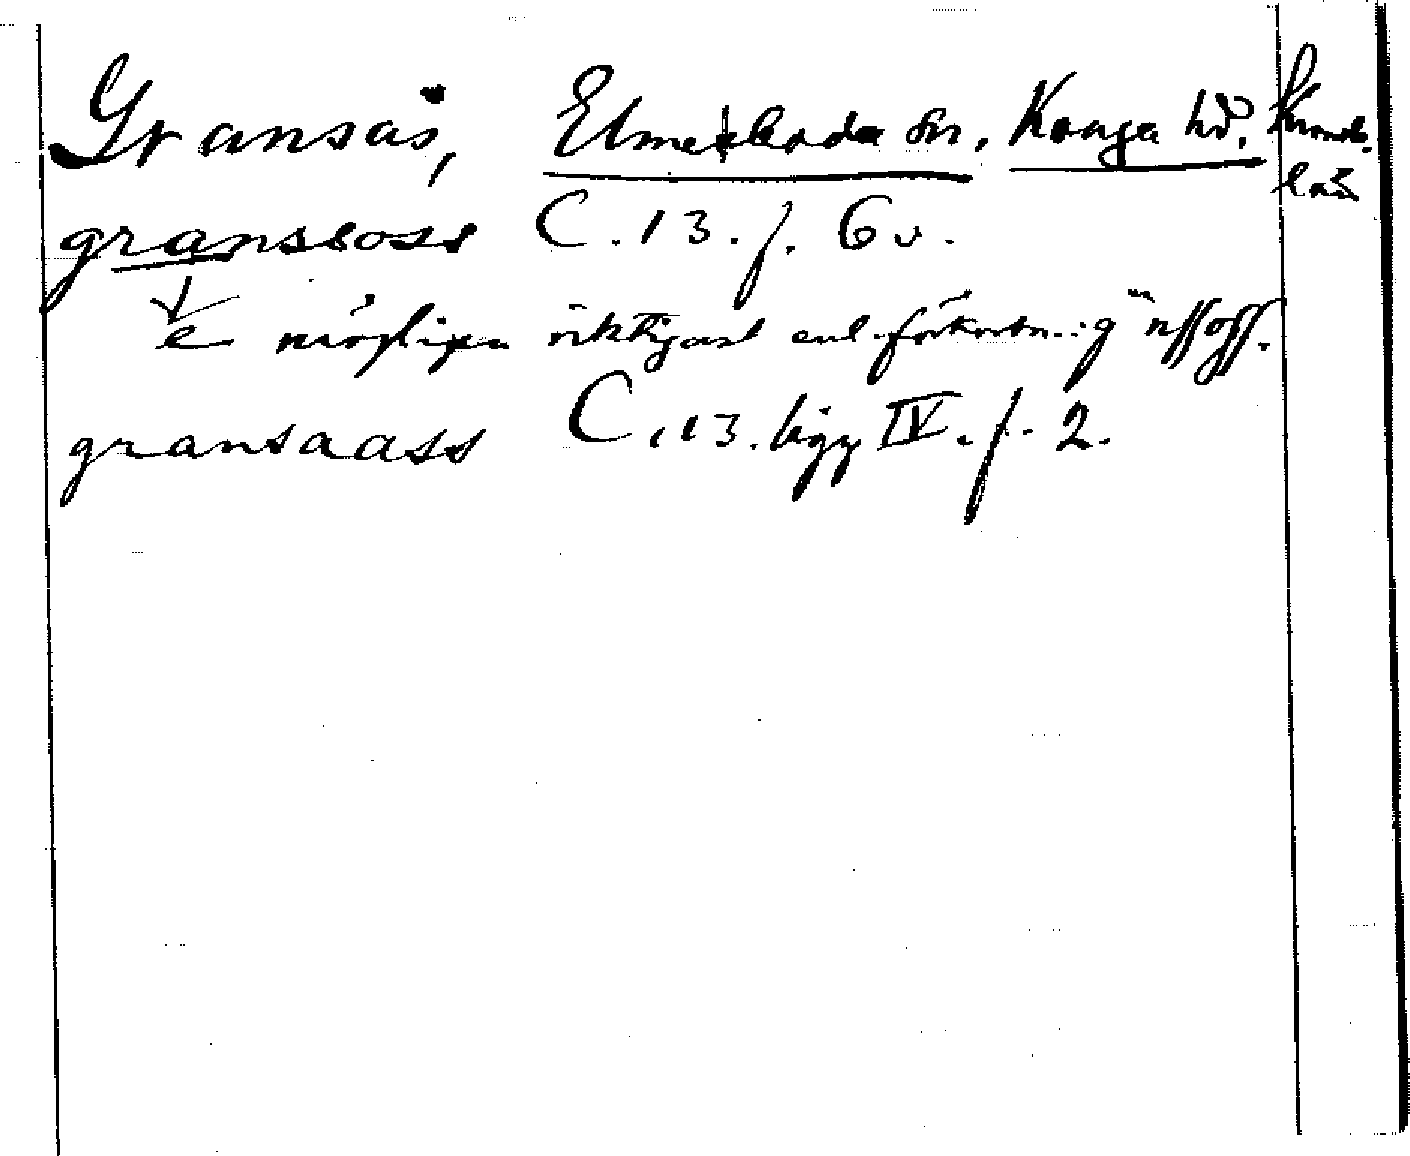 Gransås, Elmeboda sn. Konga hd. Kronob.
län
granssoss C. 13. f. 6 v.
e möjligen riktigast enl. förkortn. g nssoss.
gransaass C. 13. lägg IV. f. 2.